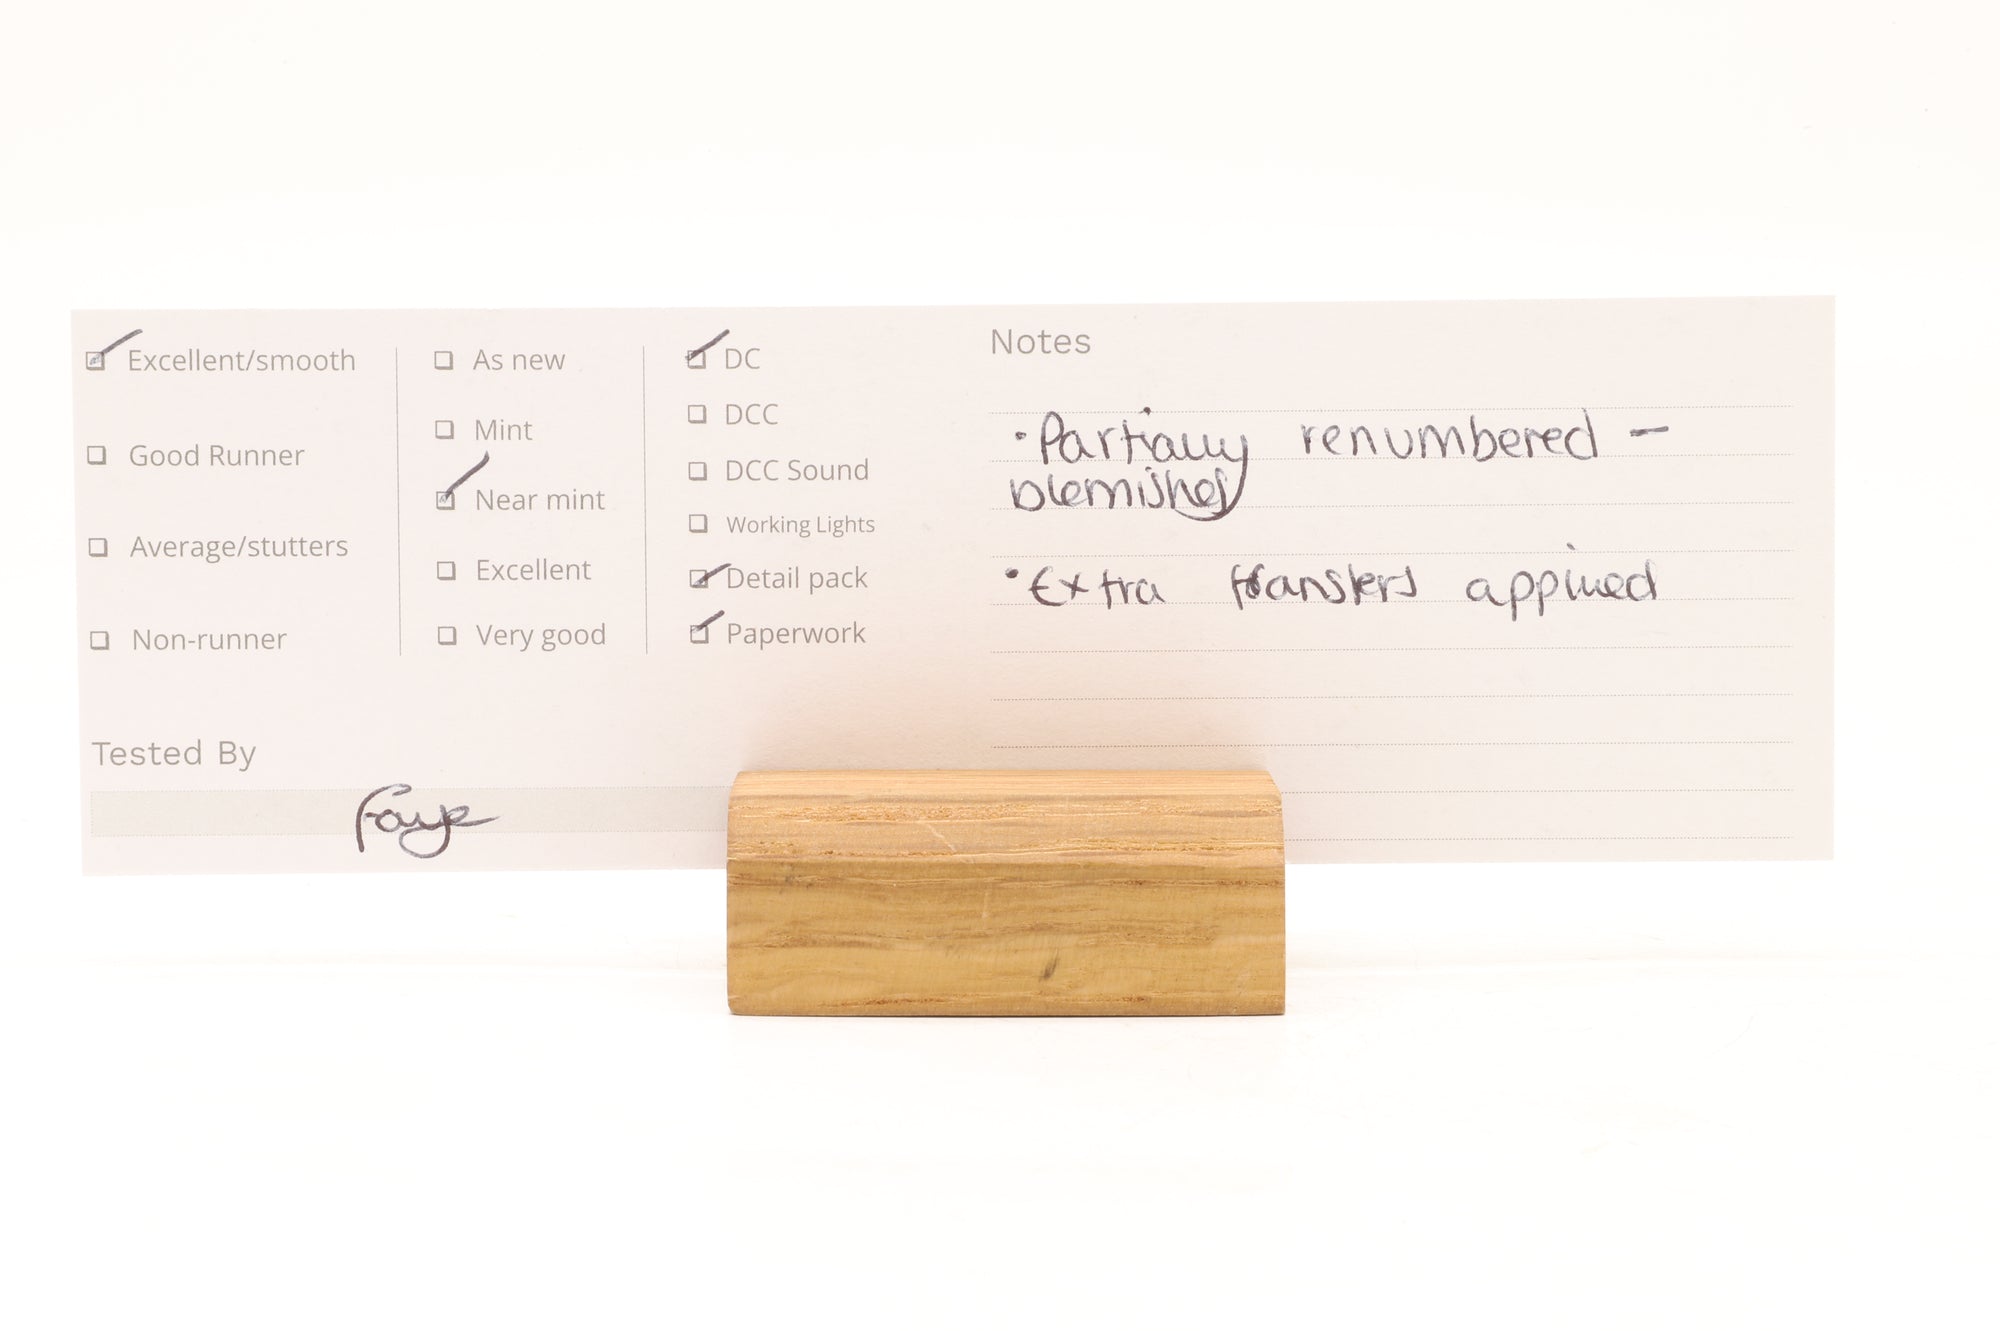 Excellent/smooth
Good Runner
Average/stutters
Non-runner
As new
Mint
Near mint
Excellent
Very good
DC
DCC
DCC Sound
Working Lights
Detail pack
Paperwork
Tested By
Faye
Notes
·Partially renumbered –
blemishes
·Extra transfers applied